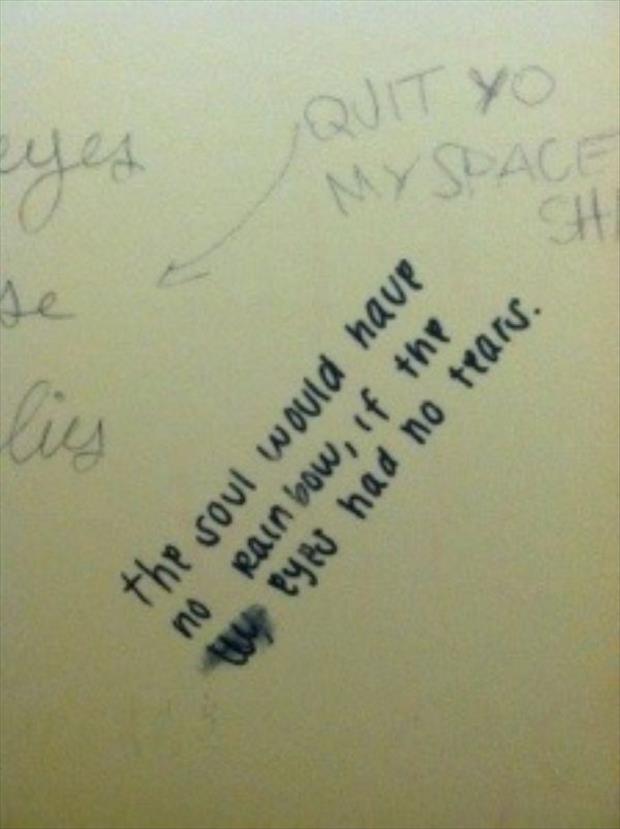 eyes
se
lies
QUIT YO
MY SPACE
SH
the soul would have
no rainbow, if the
eyes had no tears.